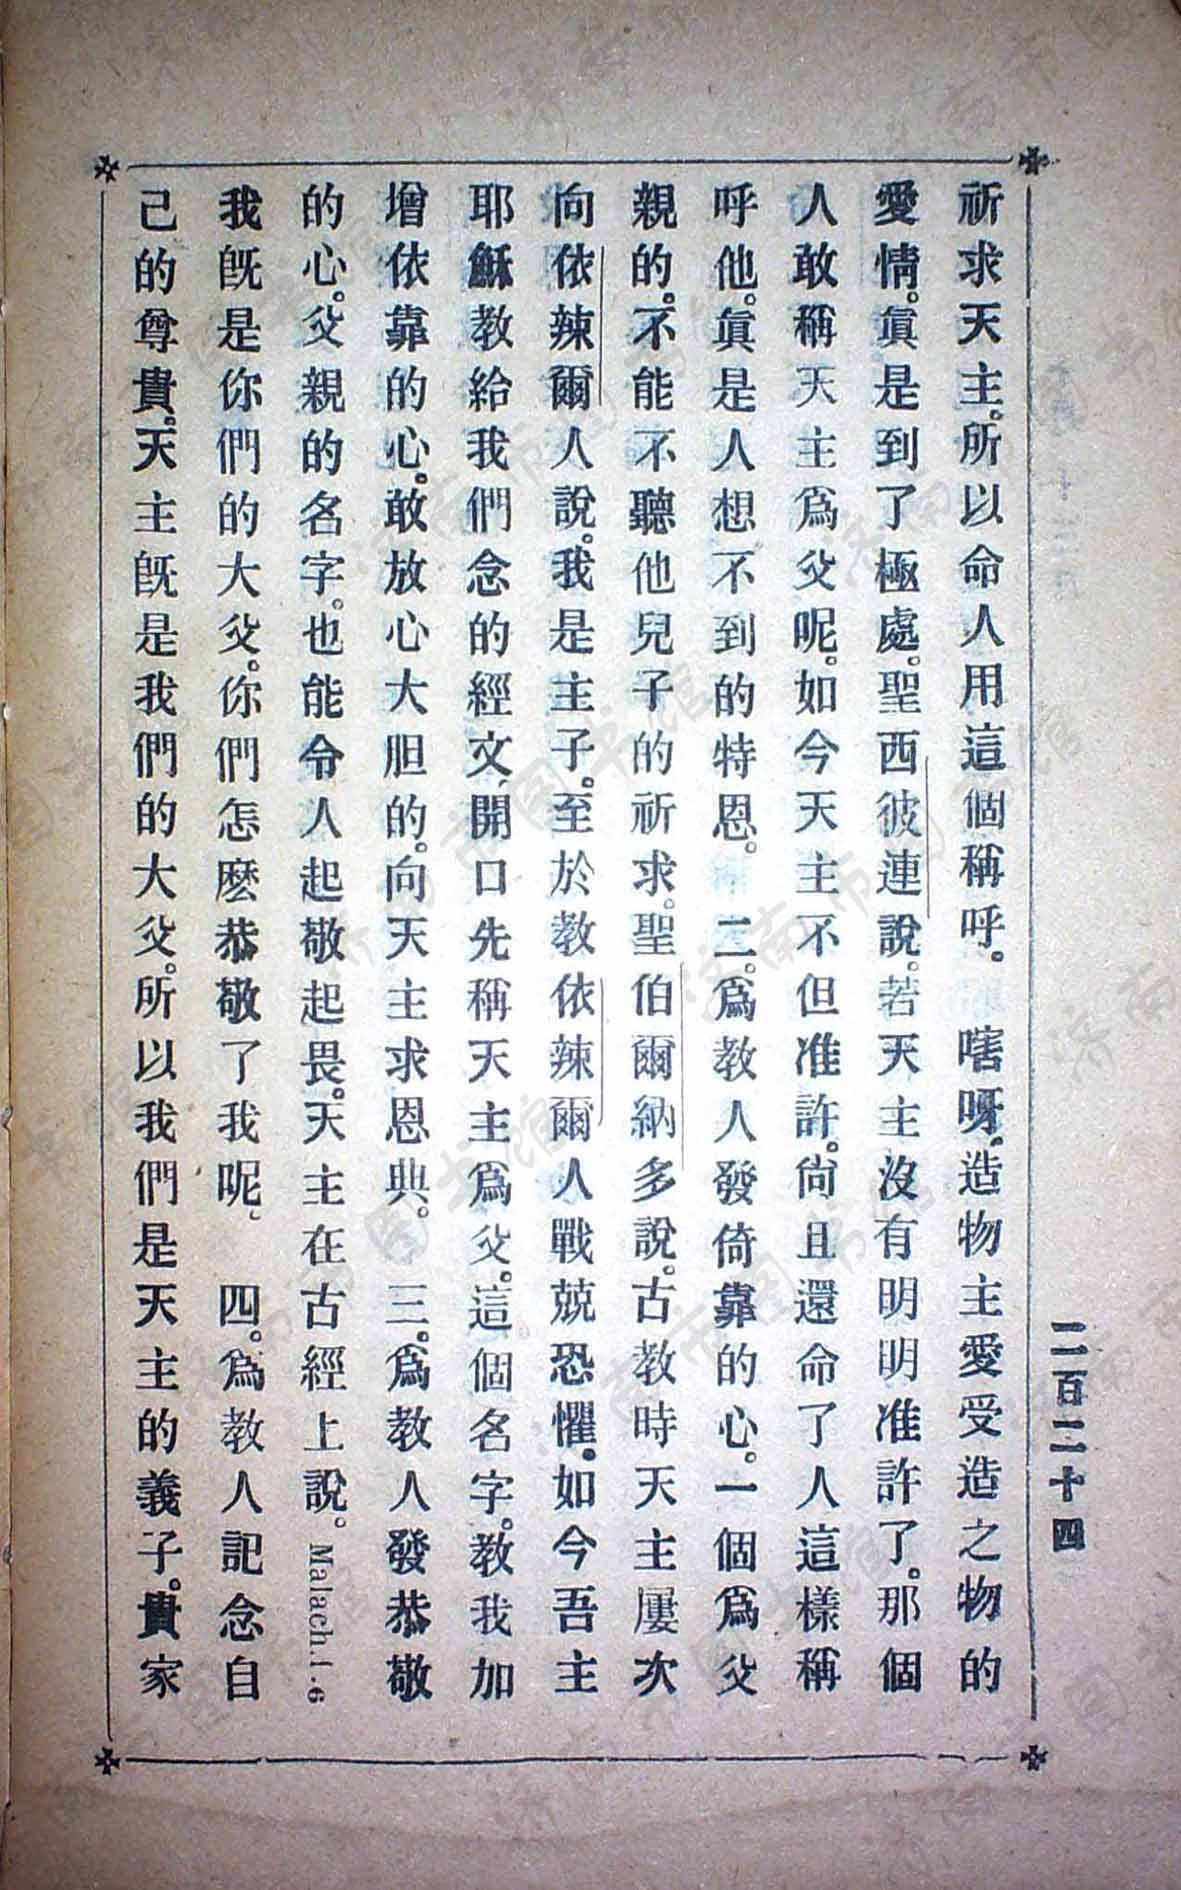 祈求天主。所以命人用這個稱呼。 嗐呀。造物主愛受造之物的
愛情。眞是到了極處。聖西彼連說。若天主沒有明明准許了。那個
人敢稱天主爲父呢。如今天主不但准許。尙且還命了人這樣稱
呼他。眞是人想不到的特恩。 二。爲教人發倚靠的心。一個爲父
親的。不能不聽他兒子的祈求。聖伯爾納多說。古教時天主屢次
向依辣爾人說。我是主子。至於教依辣爾人戰兢恐懼。如今吾主
耶穌教給我們念的經文、開口先稱天主爲父。這個名字。教我加
增依靠的心。敢放心大胆的。向天主求恩典。 三。爲教人發恭敬
的心。父親的名字。也能令人起敬起畏。天主在古經上說。Malach.1.6
我旣是你們的大父。你們怎麽恭敬了我呢、 四。爲教人記念自
己的尊貴。天主旣是我們的大父。所以我們是天主的義子。貴家
二百二十四
济南市图书馆